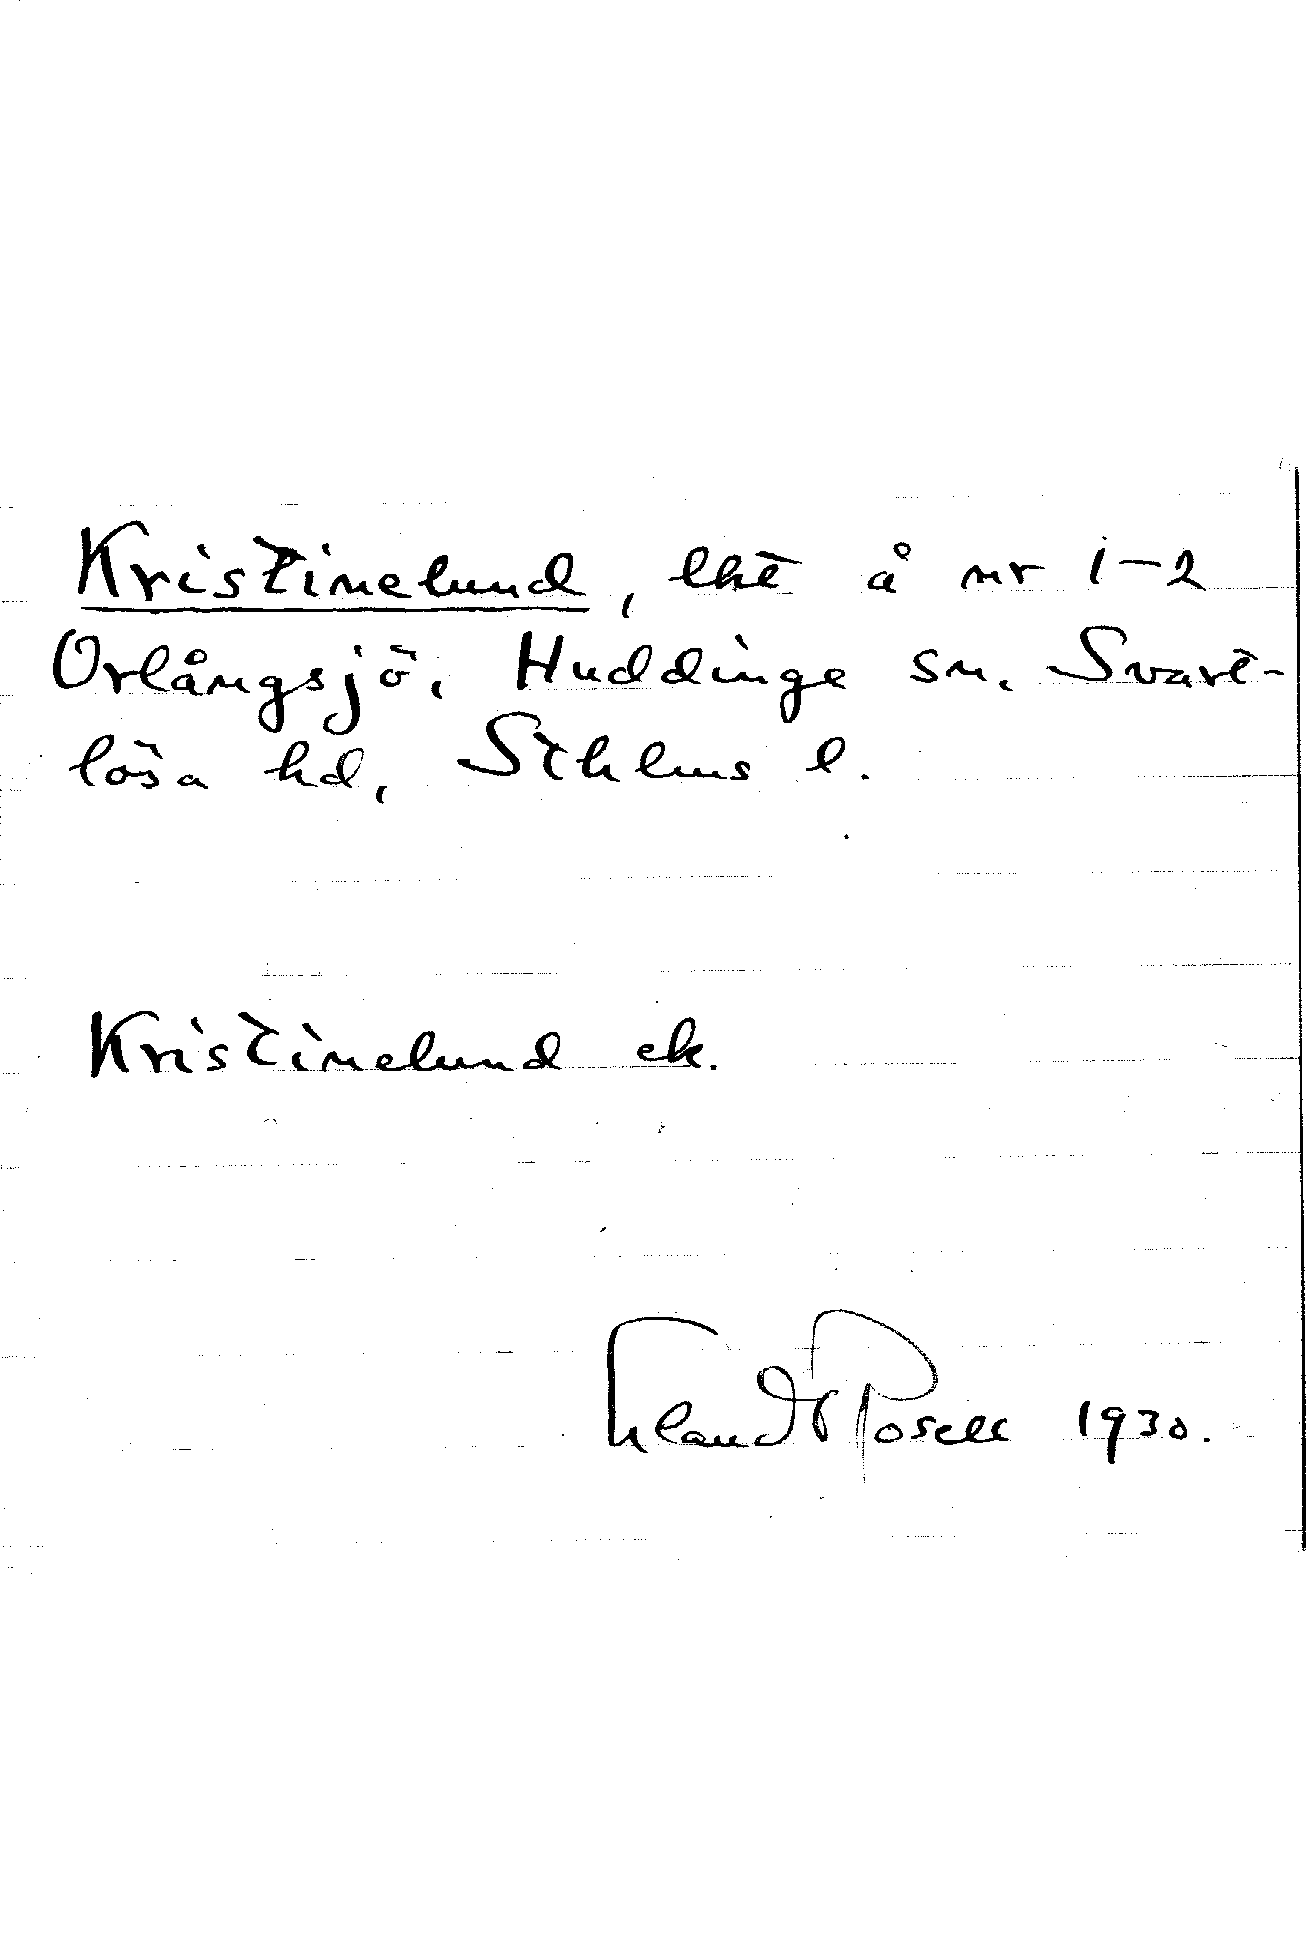 Kristinelund, lht å nr 1-2
Orlångsjö, Huddinge sn, Svart-
lösa hd, Sthlms l.
Kristinelund ek.
Erland Rosell 1930.